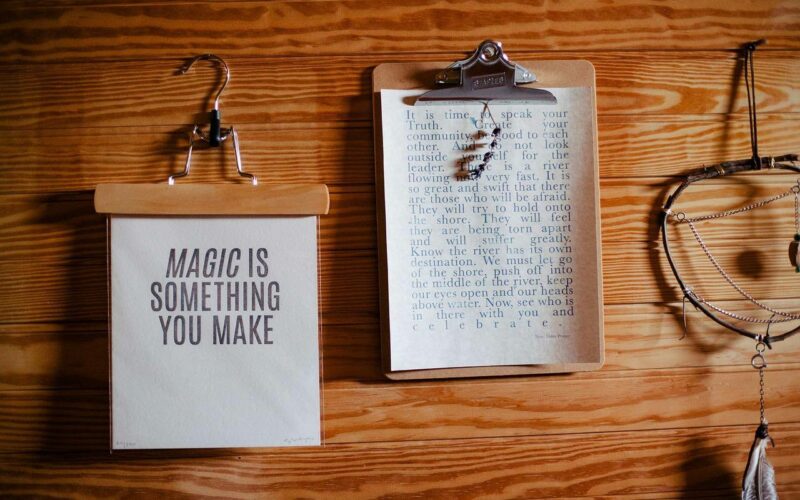 MAGIC IS
SOMETHING
YOU MAKE
It is time to speak your
Truth. Create your
community. Be good to each
other. And do not look
outside yourself for the
leader. There is a river
flowing now very fast. It is
so great and swift that there
are those who will be afraid.
They will try to hold onto
the shore. They will feel
they are being torn apart
and will suffer greatly.
Know the river has its own
destination. We must let go
of the shore, push off into
the middle of the river, keep
our eyes open and our heads
above water. Now, see who is
in there with you and
celebrate.
Prayer